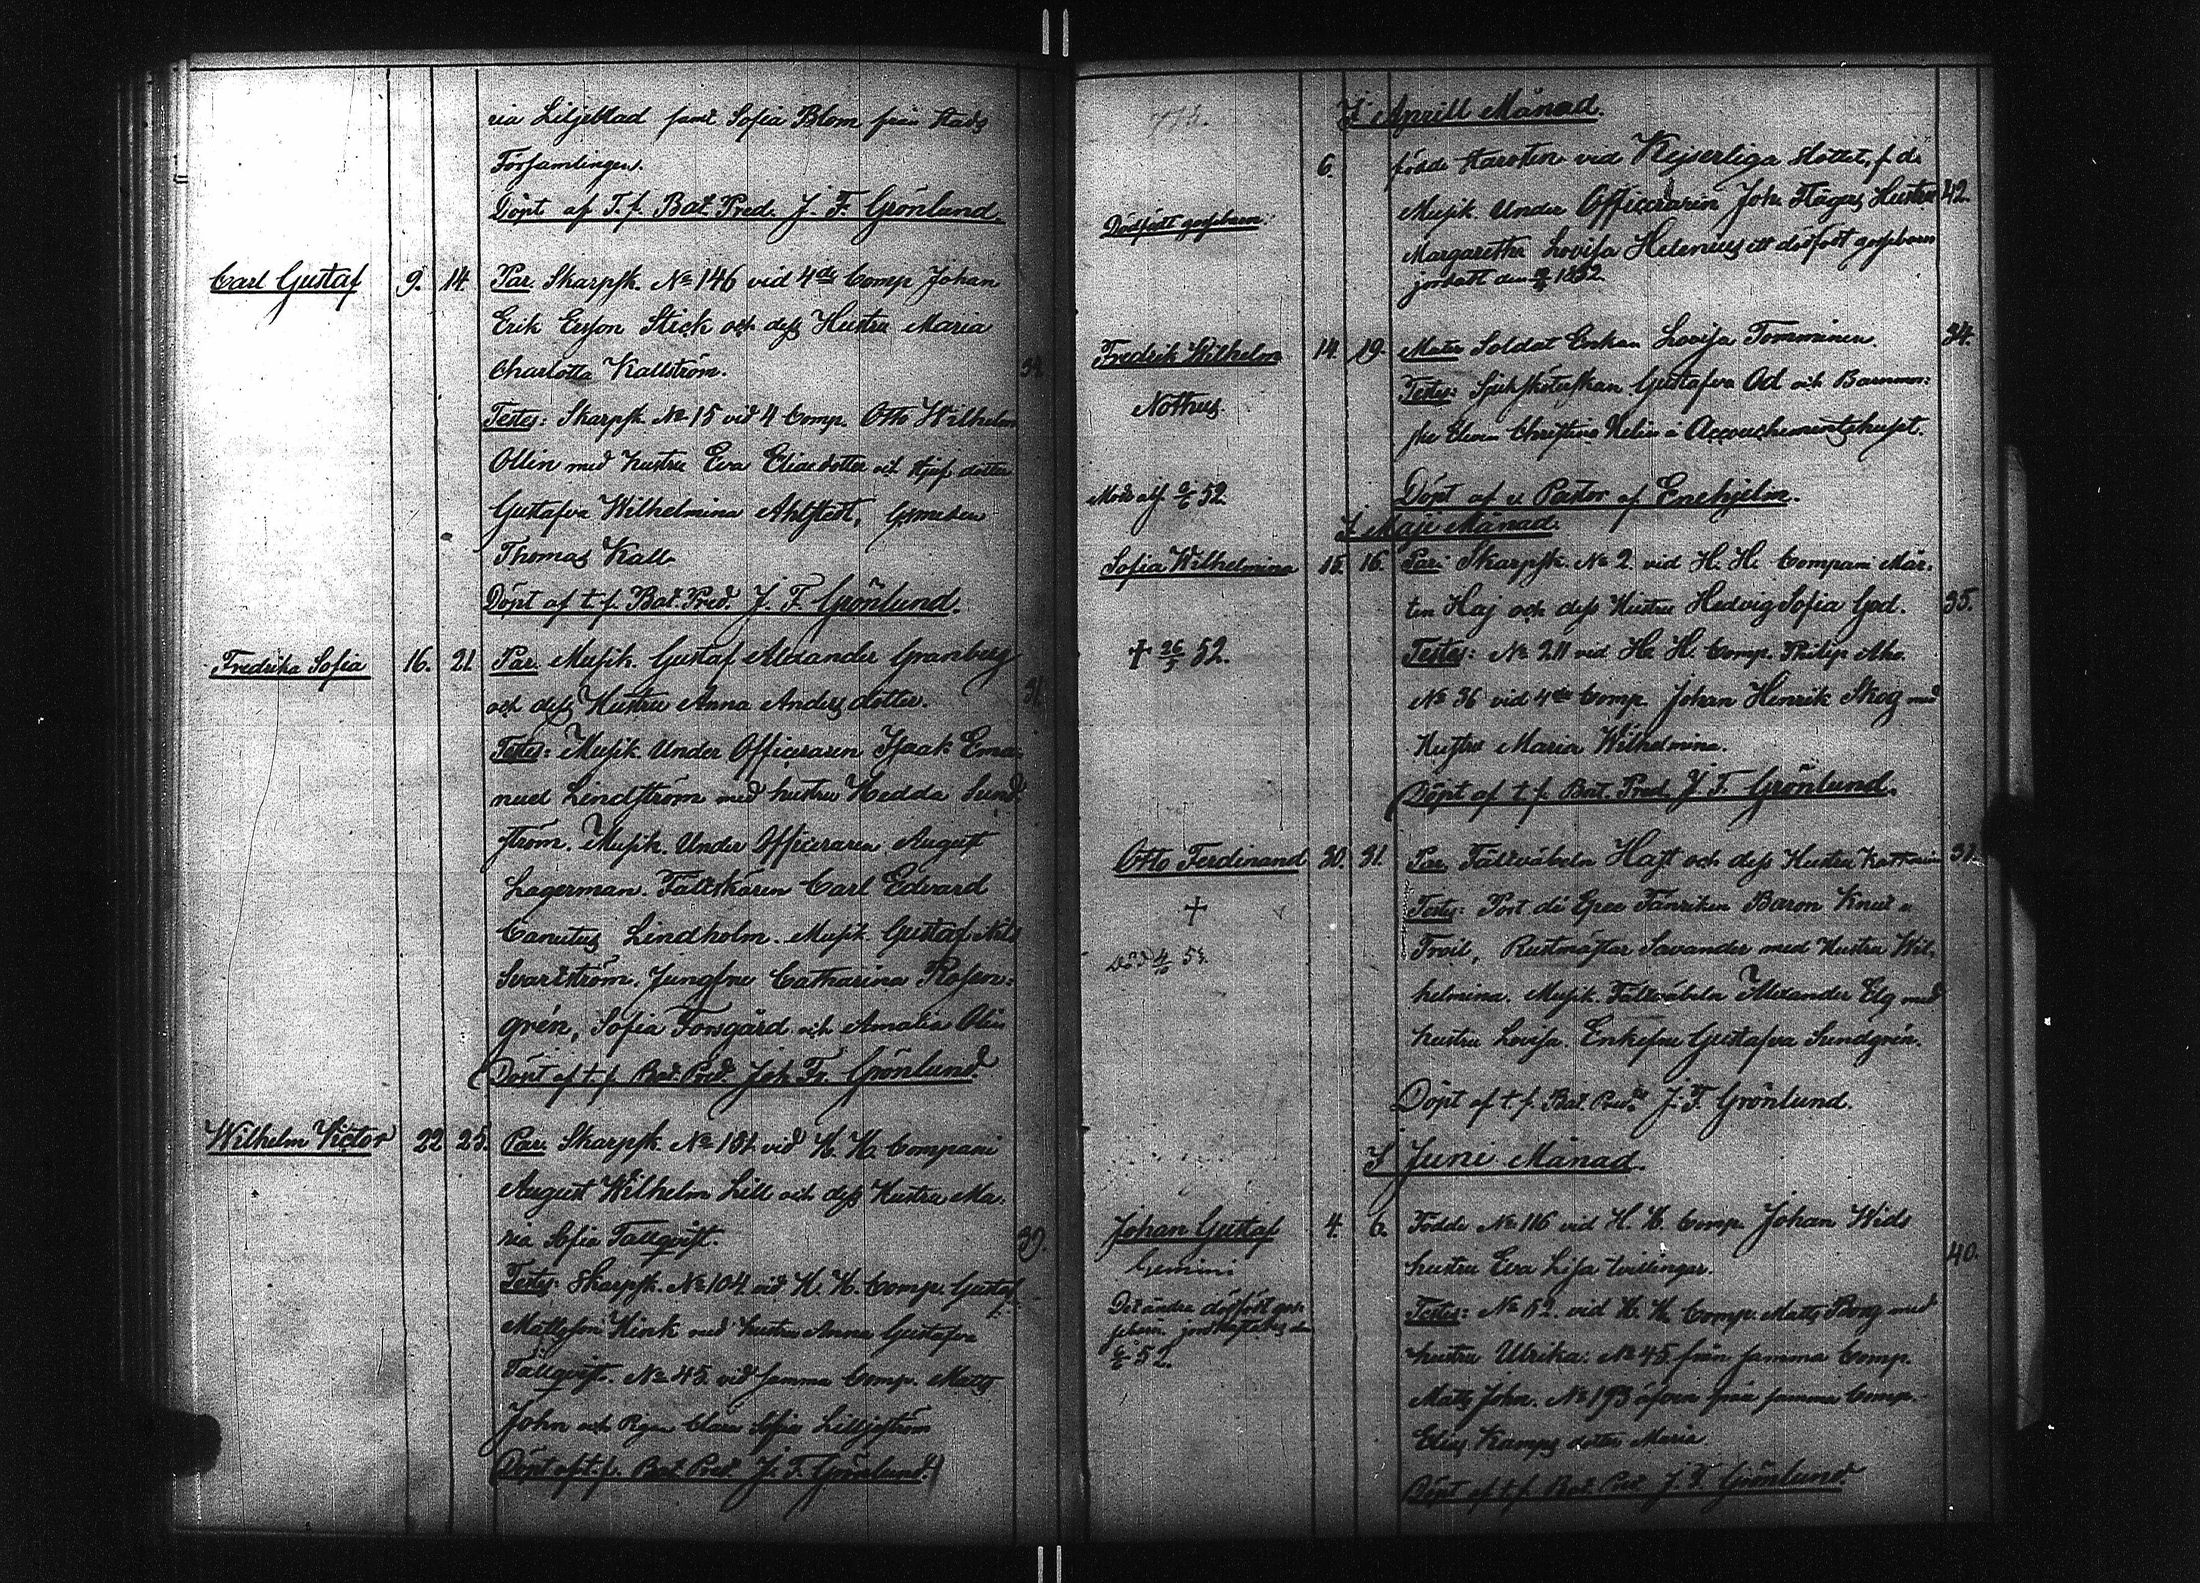 ria Liljeblad samt Sofia Blom från Stads
Församlingen.
Döpt af T. f. Bat. Pred. J. F. Grönlund.
Carl Gustaf 9. 14. Par. Skarpsk. No 146 vid 4de Comp Johan
Erik Ersson Stick och dess Hustru Maria
Charlotta Kallström.
Testes: Skarpsk. No 15 vid 4 Comp. Otto Wilhelm
Ollin med hustru Eva Eliaedotter och
Gustafva Wilhelmina Ahlstedt,
Thomas Kall
Döpt af t. f. Bat. Pred. J. F. Grönlund.
Fredrika Sofia 16. 21. Par. Musik. Gustaf Alexander Granberg
och dess Hustru Anna Anders dotter.
Testes: Musik. Under Officeraren Isaak Ema-
nuel Lindström med hustru Hedda Sund
ström. Musik. Under Officeraren August
Lagerman. Fältskären Carl Edvard
Canutus Lindholm. Musik. Gustaf
Svartström. Jungfru Catharina Rosen:
grén, Sofia Forsgård och Amalia Olin
Döpt af t. f. Bat. Pred. Joh. Fr. Grönlund
Wilhelm Victor 22 25. Par. Skarpsk. No 181 vid H. H. Compani
August Wilhelm Lill och dess Hustru Ma-
ria Sofia Tallqvist. 39.
Testes: Skarpsk. No 104 vid H. H. Comp. Gustaf
Mattsson Hink med hustru Anna Gustafva
Tallqvist. No 45 vid samma Comp. Matts
John och Pigan Clara Sofia Lilljeström
Döpt af t. f. Bat. Pred. J. F. Grönlund.
I Aprill Månad.
6. födde vid Kejserliga Slottet, f. d.
Musik. Under Officeraren Joh. Hägers Hustru 42.
Dödfödt gossebarn. Margaretha Lovisa Helenius ett dödfödt gossebarn
jordadt den 1852
Fredrik Wilhelm 14. 19. Mater Soldat Enkan Lovisa Tomminen. 34.
Nothus. Testes: Sjuksköterskan Gustafva Od och Barnmor:
ske Eleven Christina Helin i Accouchementshuset.
Mod. alf 52 Döpt af v. Pastor af Enehjelm.
I Maji Månad.
Sofia Wilhelmina 15. 16. Par. Skarpsk. No 2 vid H. H. Compani Mår-
ten Haj och dess Hustru Hedvig Sofia God. 35.
† 26/5 52. Testes: No 211 vid H. H. Comp. Philip
No 36 vid 4de Comp. Johan Henrik Skog med
Hustru Maria Wilhelmina.
Döpt af t. f. Bat. Pred. J. F. Grönlund.
Otto Ferdinand 30. 31. Par. Fältväbeln Haft och dess Hustru
† Testes: Port de Epee Fänriken Baron Knut v.
Död 53. Troil, Rustmästar Savander med Hustru Wil-
helmina. Musik. Fältväbeln Alexander Elg med
hustru Lovisa. Enkefru Gustafva Sundgrén.
Döpt af t. f. Bat. Pred. J. F. Grönlund.
I Juni Månad.
Johan Gustaf 4. 6. Födde No 116 vid H. H. Comp. Johan Wids
Gemini hustru Eva Lisa tvillingar. 40.
Det andra dödfödt gos- Testes: No 52. vid H. H. Comp. Matts Bong med
sebarn, jordfästades den hustru Ulrika: No 45 från samma Comp.
52. Matts John. No 193 äfven från samma Comp.
Elias Kamps dotter Maria
Döpt af t. f. Bat. Pred. J. F. Grönlund